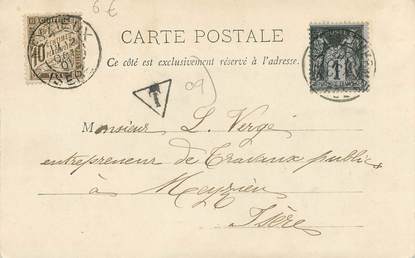 6€
CARTE POSTALE
Ce côté est exclusivement réservé à l'adresse.
10
1
T
09
Monsieur L. Vergé
entrepreneur de Travaux publics
à Meyzieu
Isère